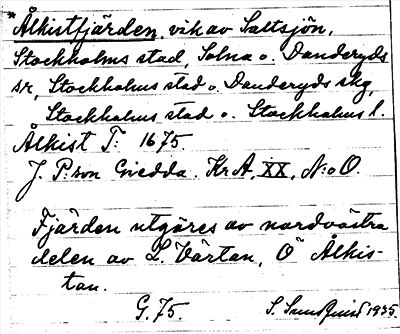 *Ålkistfjärden, vik av Saltsjön,
Stockholms stad, Solna o. Danderyds
sr, Stockholms stad o. Danderyds skg,
Stockholms stad o. Stockholms l.
Ålkist T: 1675.
J. P:son Gedda. KrA, XX, N:o O.
Fjärden utgöres av nordvästra
delen av L. Värtan, Ö Ålkis-
tan.
G. 75. S. 1935.